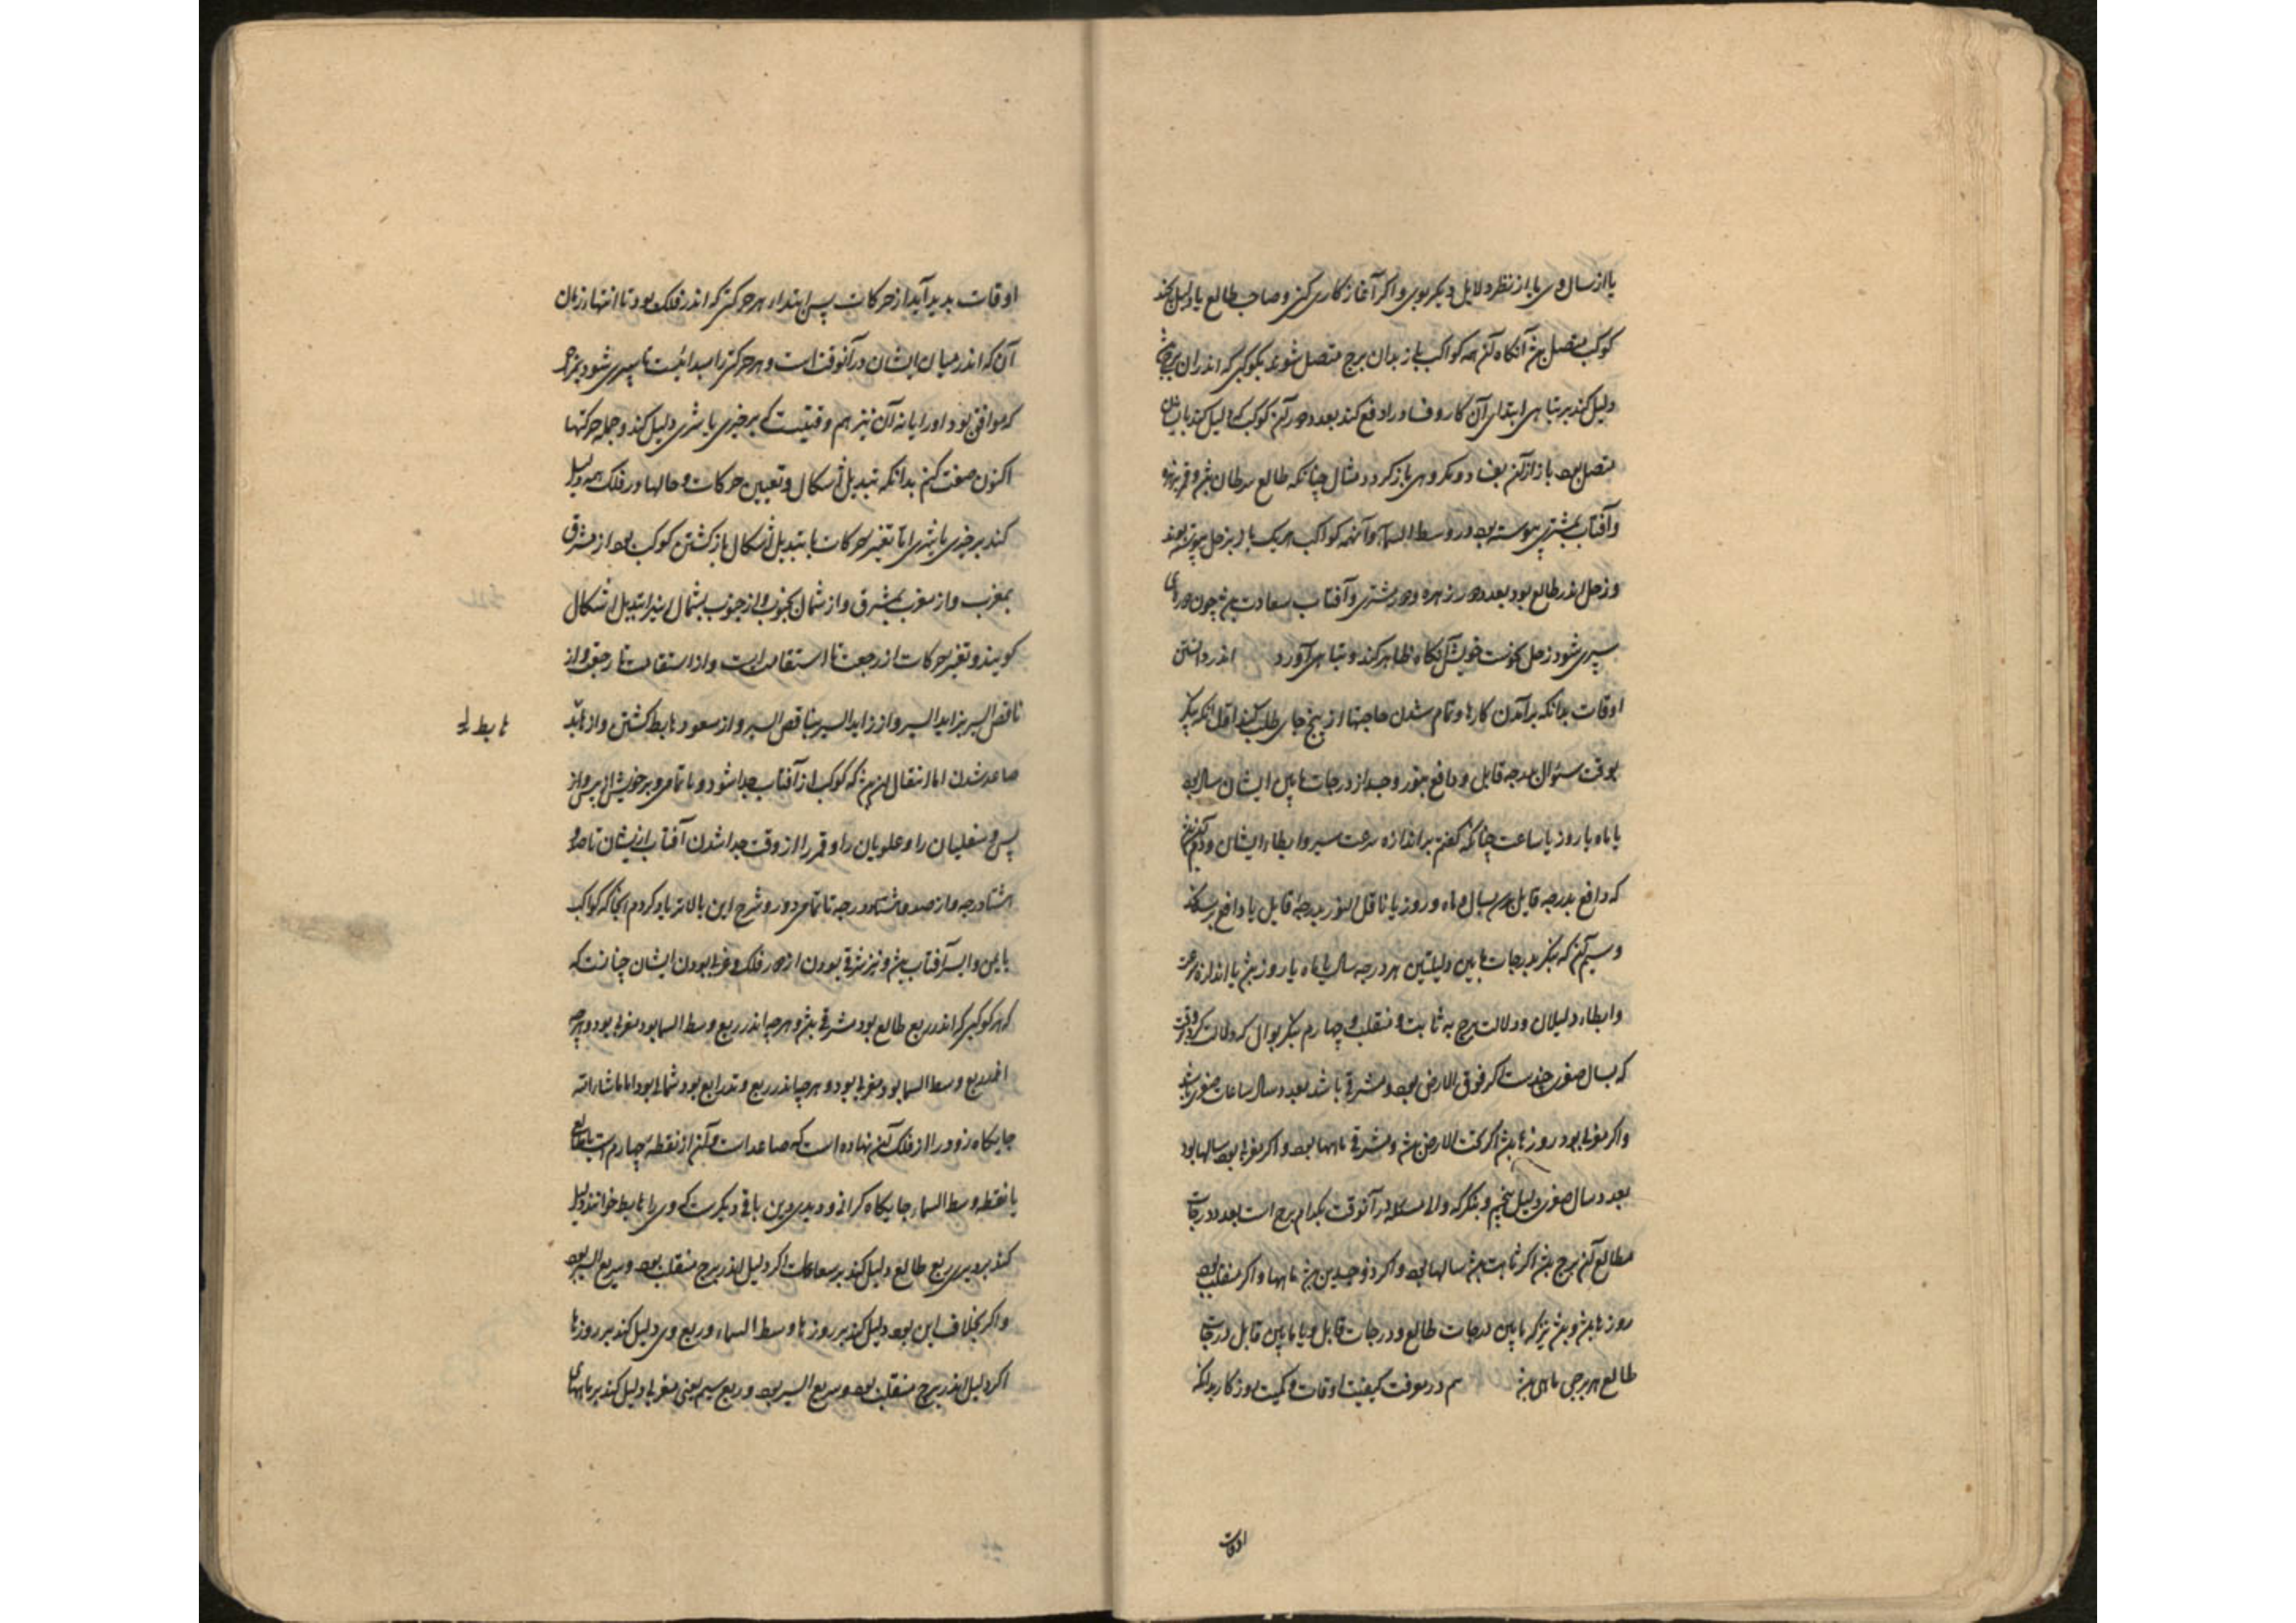 یا از سال وی یا از نظر دلایل دیگر بوی و اگر آغاز کاری کنی و صاحب طالع یا دلیل کند
کوکب متصل بشد آنگاه آن همه کواکب باز بدان برج متصل شوند بکوکبی که اندران برج باشد
دلیل کند بر تباهی ابتدای آن کار و فساد را دفع کند بعدد دور آن کوکب که دلیل کند بایشان
متصل بود باز از آن بفساد و مکروهی باز کردد مثال چنانکه طالع سرطان بشد و قمر بزهره
و آفتاب بمشتری پیوسته بود در وسط السما و آنهمه کواکب هر یک باز بزحل پیوسته بوند
و زحل اندر طالع بود بعدد دور زهره و دور مشتری و آفتاب سعادت بشد چون دورای
سپری شود زحل نحوست خویش آنگاه ظاهر کند و تباهی آورد اندر دانستن
اوقات بدانکه برآمدن کارها و تمام شدن حاجتها از پنج جای طلب کنند اول آنکه بنگر
بوقت سئوال بدرجه قابل و دافع بنور و چند از درجات مابین ایشان سال بود
یا ماه یا روز یا ساعت چنانکه گفتم بر اندازه سرعت سیر و ابطاء ایشان و دوم آنکه بنگر
که دافع بدرجه قابل رسد بسال و ماه و روز یا ناقل النور بدرجه قابل یا دافع برسد
و سیم آن که بنگر بدرجات مابین دلیلین هر درجه سالی یا ماه یا روز بشد یا اندازه سرعت
و ابطاء دلیلان و دلالت برج به ثابت و منقلب و چهارم بنگر بوال که دلالت کرد وقت
که بسال صغری چندست اگر فوق الارض بود و مشرقی باشد بعدد سال ساعات صغری باشد
و اگر مغربی بود روزها بشد اگر تحت الارض بشد و مشرقی ماهها بود و اگر مغربی بود سالها بود
بعدد سال صغری دلیل پنجم و بنگر که والا مسئله در آنوقت بکدام برج است بعدد درجات
مطالع آن برج بشد اگر ثابت بشد سالها بود و اگر ذو جسدین بشد ماهها و اگر منقلب بود
روزها بشد و بشد نیز که مابین درجات طالع و درجات قابل و یا مابین قابل درجات
طالع هر برجی ماهی بشد هم در معرفت کیفیت اوقات و کمیت روزگار بدانکه
اوقات
اوقات بدید آید از حرکات پس ابتداء هر حرکتی که اندر فلک بود تا انتهاء زمان
آن که اندر میان ایشان در آنوقت است و هر حرکتی را مبدائیست تا سپری شود بنزد
که موافق بود او را یا نه آن نیز هم وقتیست که بر خیری یا شری دلیل کند و جمله حرکتها
اکنون صفت کنم بدانکه تبدیل اشکال و تعیین حرکات و حالها در فلک همه دلیل
کند بر خیری یا شری اما تغیر حرکات یا تبدیل اشکال باز کشتن کوکب بود از مشرق
بمغرب و از مغرب بمشرق و از شمال بجنوب و از جنوب بشمال این را تبدیل اشکال
کویند و تغیر حرکات از رجعت تا استقامت است و از استقامت تا رجعت و از
ناقص السیر بزاید السیر و از زاید السیر بناقص السیر و از صعود هابط کشتن و از هابط
صاعد شدن اما انتقال این بشد که کوکب از آفتاب جدا شود و تا تمامی دور خویش از پس و از
پس و سفلیان را و علویان را و قمر را از وقت جدا شدن آفتاب از ایشان تا صد و
هشتاد درجه و از صد و هشتاد درجه تا تمامی دور و شرح این بالاتر یاد کردم آنجا که کواکب
یامن و ایسر آفتاب بشد و نیز شرقی بودن از دور فلک و غربی بودن ایشان چنانست که
که هر کوکبی که اندر ربع طالع بود مشرقی بشد و هر چه اندر ربع وسط السما بود مغربی بود و هر چه
اندر ربع وسط السما بود مغربی بود و هر چه اندر ربع وتد رابع بود شمالی بود اما ماشاءالله
جایگاه زودرا از فلک آن نهاده است که صاعد است و آن از نقطه چهارم است تا طالع
یا نقطه وسط السماء جایگاه گرانی و دیری وین باقی دیگرست که وی را هابط خوانند دلیل
کند بر دیری ربع طالع دلیل کند بر ساعات اگر دلیل اندر برج منقلب بود و سریع السیر بود
و اگر بخلاف این بود دلیل کند بر روزها وسط السماء و ربع وی دلیل کند بر روزها
اگر دلیل اندر برج منقلب بود و سریع السیر بود و ربع سیم یعنی مغربی دلیل کند بر ماهها